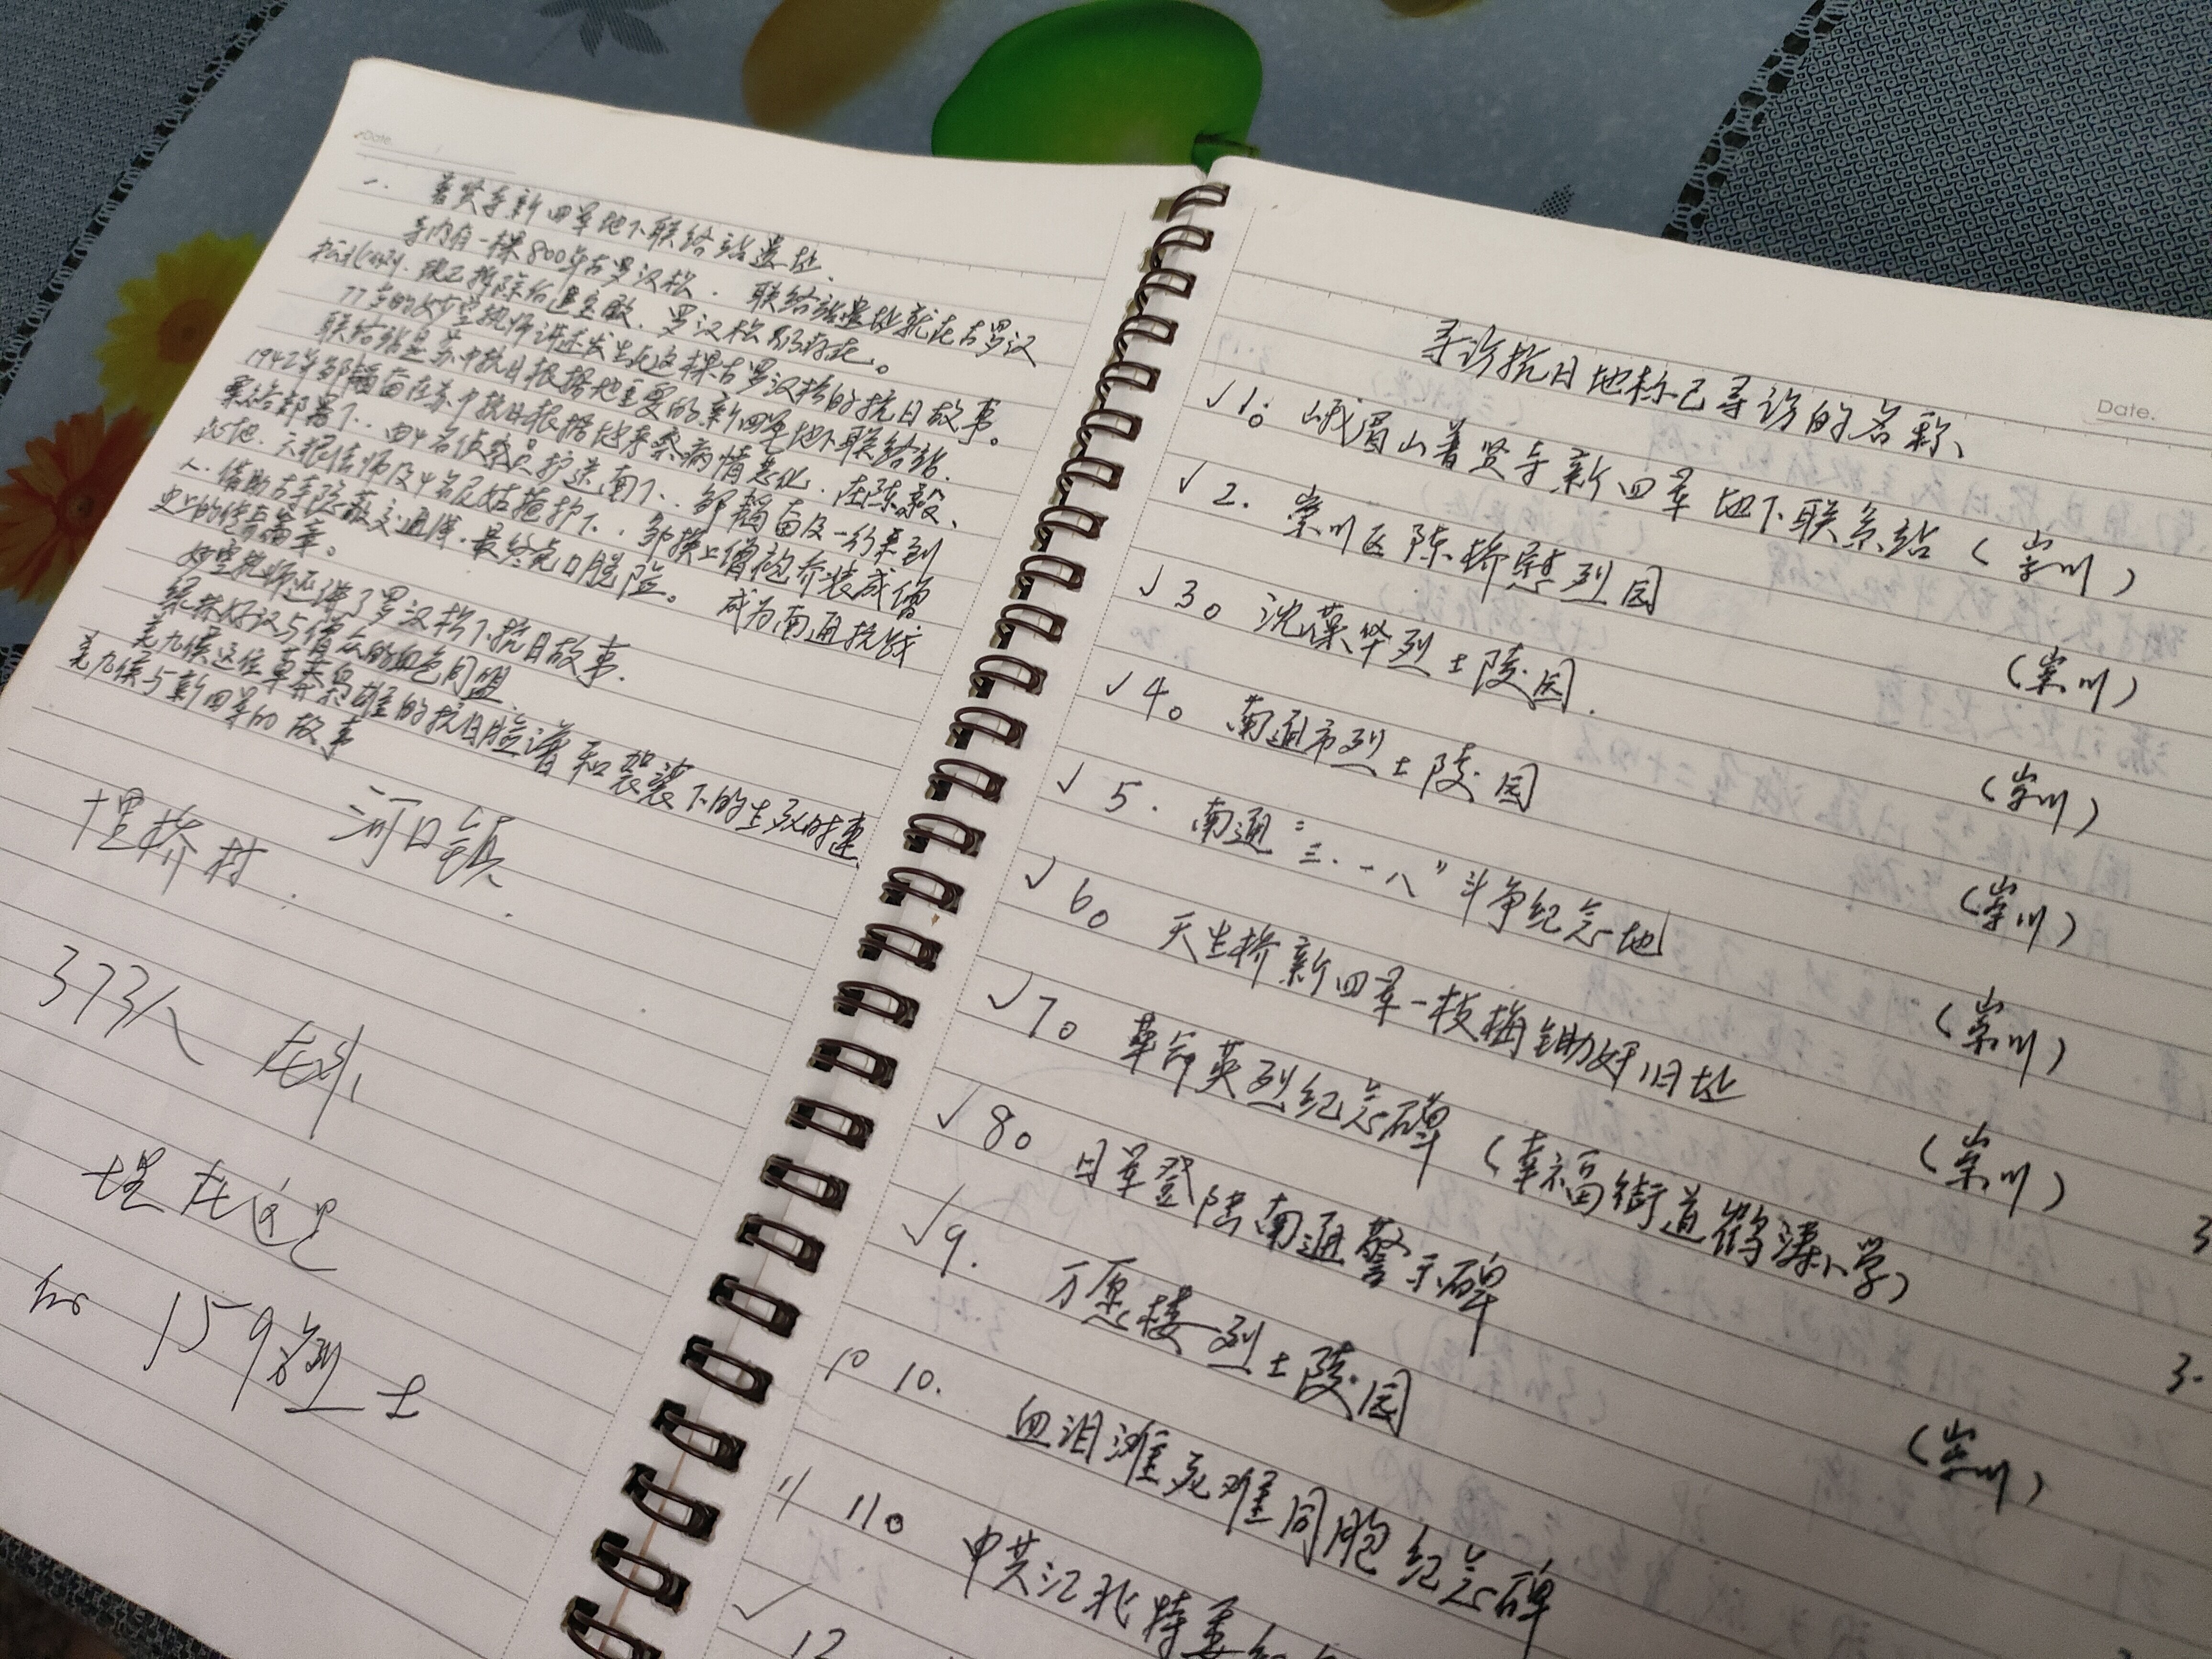 Date.
一. 普贤寺新四军地下联络站遗址.
寺内有一棵800年古罗汉松. 联络站遗址就在古罗汉
松北侧. 现已拆除后退宝殿. 罗汉松仍存在。
77岁的妙空执师讲述发生在这棵古罗汉松的抗日故事。
联络站是苏中抗日根据地重要的新四军地下联络站.
1942年邹韬奋在苏中抗日根据地考察病情恶化. 在陈毅、
粟裕部署下.. 由4名侦察员护送南下.. 邹韬奋及一行来到
此地. 六根信师及4名尼姑掩护下.. 邹换上僧袍乔装成僧
人. 借助古寺隐蔽交通库. 最终虎口脱险。 成为南通抗战
史上的传奇篇章。
妙空执师还讲了罗汉松下抗日故事.
绿林好汉与僧众的血色同盟
九侯这位草莽枭雄的抗日脸谱和袈裟下的生死时速
九侯与新四军的故事
埋桥村. 河口镇.
373人
埋在这里
159 烈士
Date.
寻访抗日地标已寻访的名称、
✓1。 峨眉山普贤寺新四军地下联系站 (崇川)
✓2. 崇川区陈桥慰烈园 (崇川)
✓3。 沈葆华烈士陵园. (崇川)
✓4。 南通市烈士陵园 (崇川)
✓5. 南通"三.一八"斗争纪念地 (崇川)
✓6。 天生桥新四军一枝梅锄奸旧址 (崇川)
✓7。 革命英烈纪念碑 (幸福街道鹤涛小学) 3
✓8。 日军登陆南通警示碑 3.
✓9. 万愿楼烈士陵园 (崇川)
10 10. 血泪滩死难同胞纪念碑
11 11。 中共江北特委
✓ 12